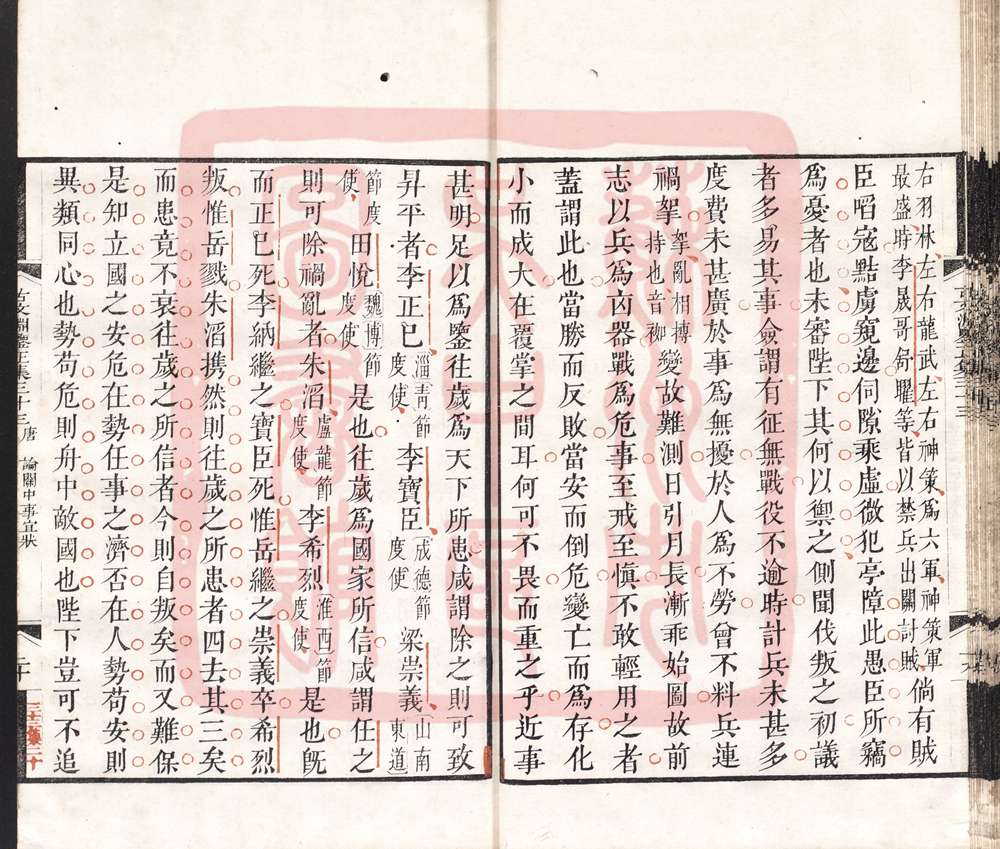 右羽林左右龍武左右神策爲六軍神策軍
最盛時李晟哥舒曜等皆以禁兵出關討賊
倘有賊
臣啗寇黠虜窺邊伺隙乘虛微犯亭障此愚臣所竊
爲憂者也未審陛下其何以禦之側聞伐叛之初議
者多易其事僉謂有征無戰役不逾時計兵未甚多
度費未甚廣於事爲無擾於人爲不勞曾不料兵連
禍拏
拏亂相搏
持也音袽
變故難測日引月長漸乖始圖故前
志以兵爲凶器戰爲危事至戒至慎不敢輕用之者
蓋謂此也當勝而反敗當安而倒危變亡而爲存化
小而成大在覆掌之間耳何可不畏而重之乎近事
甚明足以爲鑒往歲爲天下所患咸謂除之則可致
昇平者李正巳
淄青節
度使
李寶臣
成德節
度使
梁崇義
山南
東道
節度
使
田悅
魏博節
度使
是也往歲爲國家所信咸謂任之
則可除禍亂者朱滔
盧龍節
度使
李希烈
淮西節
度使
是也旣
而正巳死李納繼之寶臣死惟岳繼之崇義卒希烈
叛惟岳戮朱滔攜然則往歲之所患者四去其三矣
而患竟不衰往歲之所信者今則自叛矣而又難保
是知立國之安危在勢任事之濟否在人勢苟安則
異類同心也勢苟危則舟中敵國也陛下豈可不追
古文淵鑒正集卷三十三
唐
論關中事宜狀
二十